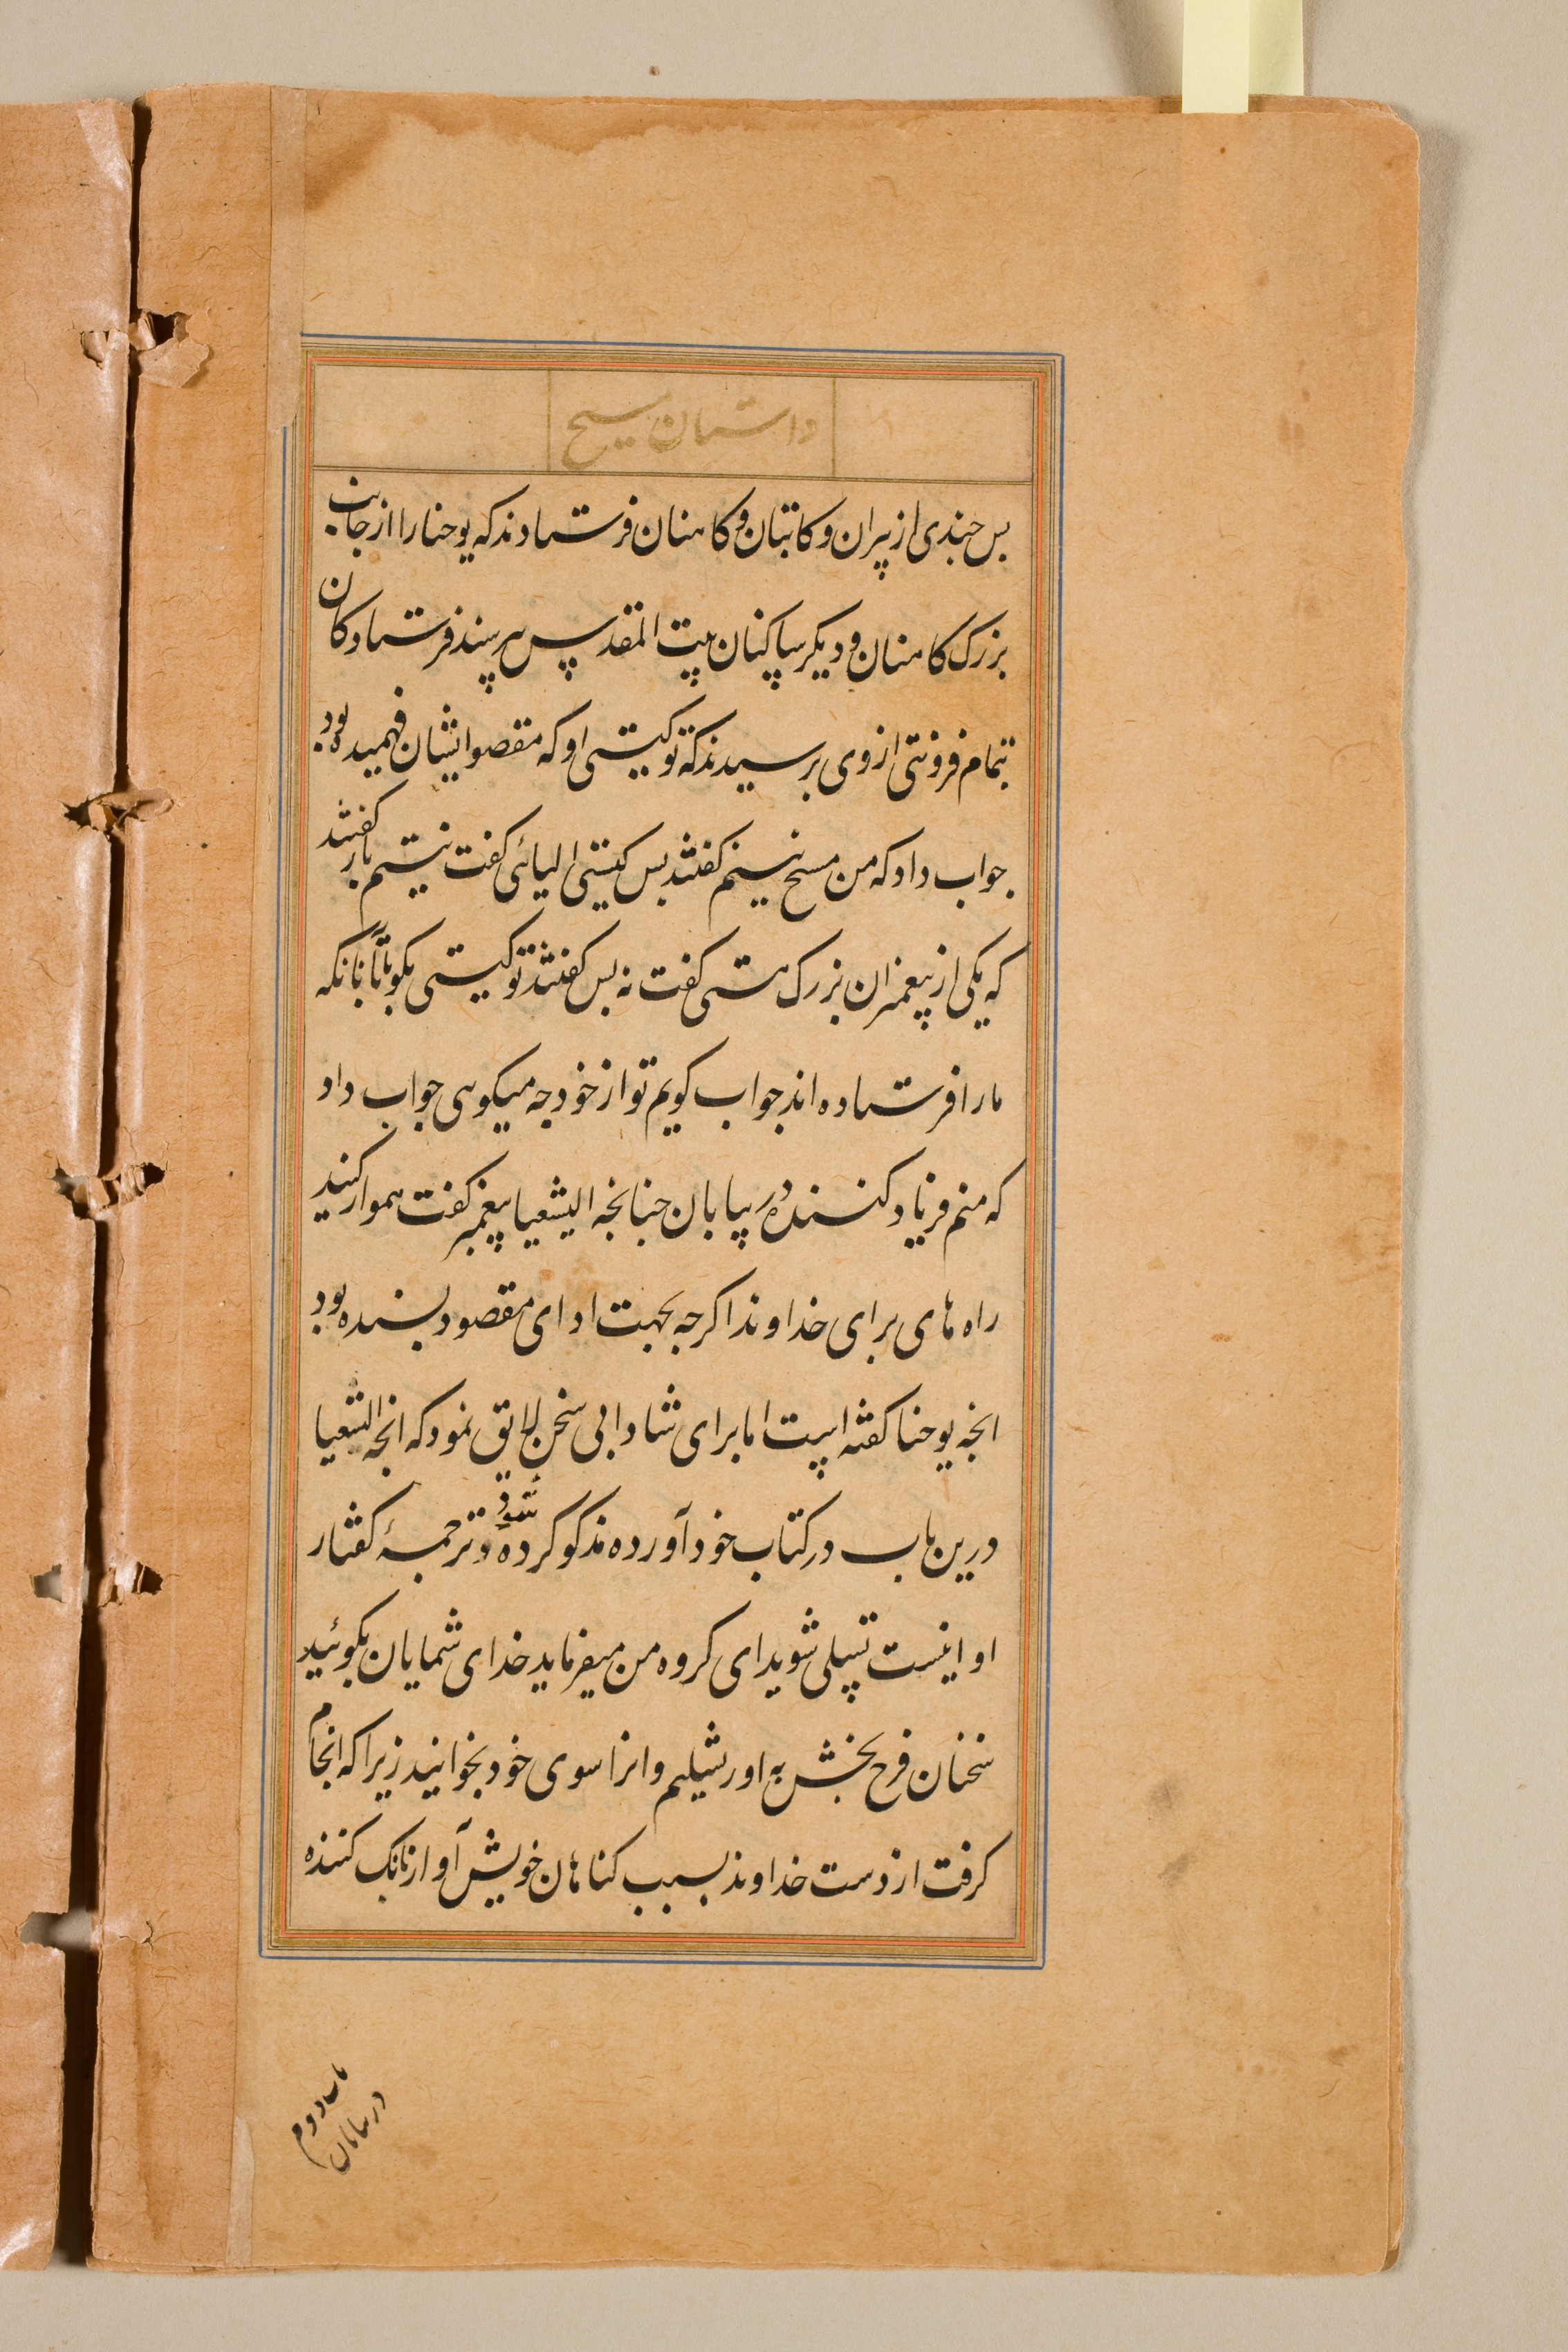 داستان مسیح
بس جندی از پیران و کاتبان و کاهنان فرستادند که یوحنا را از جانب
بزرک کاهنان و دیکر ساکنان بیت المقدس بپرسند فرستادکان
بتمام فروتنی از وی برسیدند که تو کیستی او که مقصو ایشان فهمیده بود
جواب داد که من مسیح نیستم کفتند بس کیستی الیائی کفت نیستم باز کفتند
که یکی از پیغمبران بزرک هستی کفت نه بس کفتند تو کیستی بکو تا بآنانکه
ما را فرستاده اند جواب کویم تو از خود جه میکوئی جواب داد
که منم فریاد کننده در بیابان جنانجه الیشعیا پیغمبر کفت هموار کنید
راه های برای خداوند اکرجه بجهت ادای مقصود بسنده بود
انجه یوحنا کفته است اما برای شادابی سخن لایق نمود که انجه الشعیا
درین باب در کتاب خود آورده مذکو کرده شود و ترجمهٔ کفتار
او اینست تسلی شوید ای کروه من میفرماید خدای شمایان بکوئید
سخنان فرح بخش به اورشیلیم و انرا سوی خود بخوانید زیرا که انجام
کرفت از دست خداوند بسبب کناهان خویش آواز بانک کننده
باب دوم
در بیابان